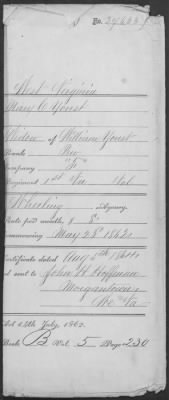 No. 29633
West Virginia
Mary C Youst
Widow of William Youst
Rank Priv
Company "F"
Regiment 1st Va Vol
Wheeling Agency.
Rate per month, $ 8
Commencing May 28" 1862
Certificate dated Aug 5th 1864
and sent to John H Hoffman
Morgantown
W Va
Act 14th July, 1862.
Book B Vol. 5 Page 230